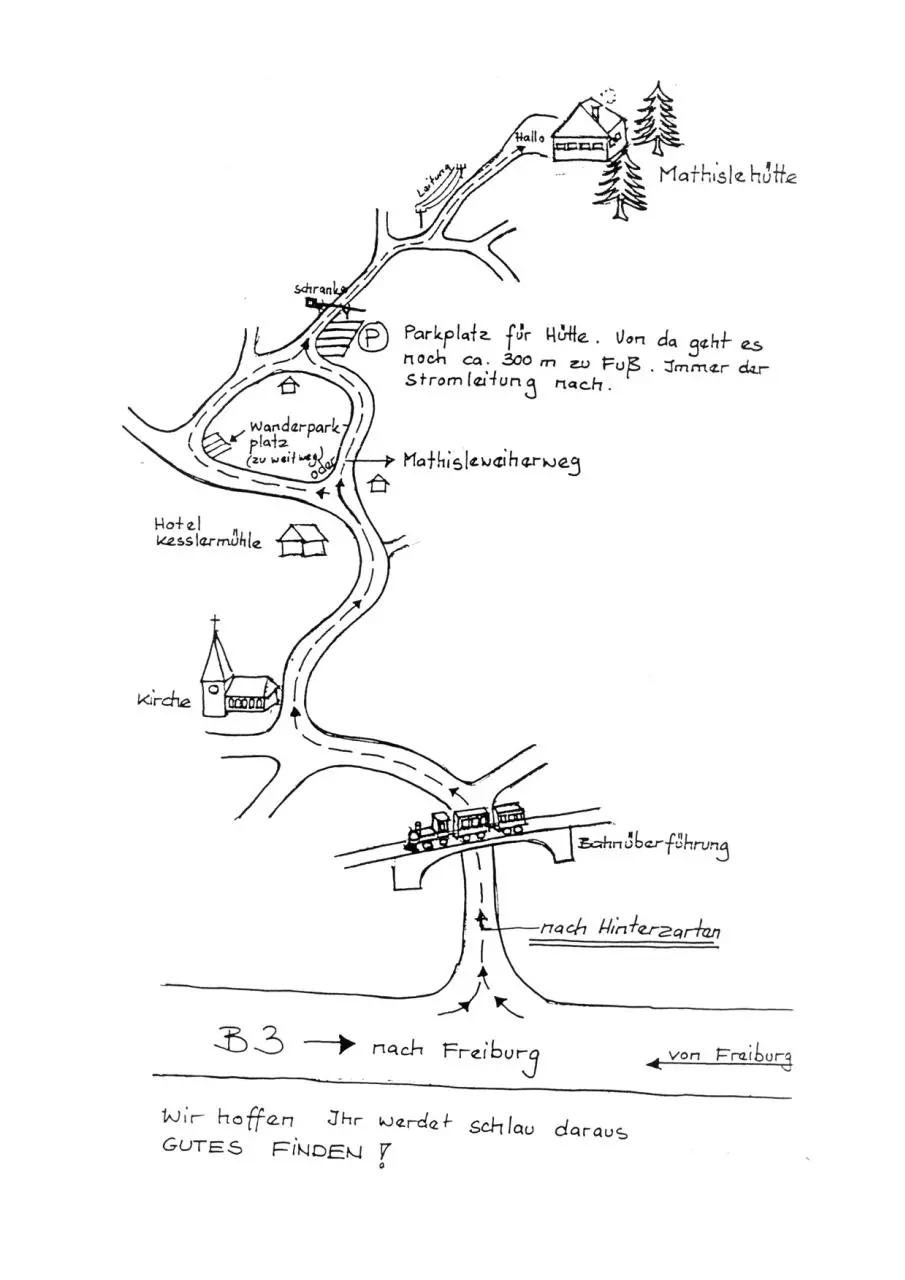 Hallo
Mathislehütte
Leitung
Schranke
P
Parkplatz für Hütte. Von da geht es
noch ca. 300 m zu Fuß. Immer der
Stromleitung nach.
Wanderpark-
platz
(zu weit weg)
oder
Mathisleweiherweg
Hotel
Kesslermühle
Kirche
Bahnüberführung
nach Hinterzarten
B3 → nach Freiburg
von Freiburg
Wir hoffen Ihr werdet schlau daraus
GUTES FINDEN!